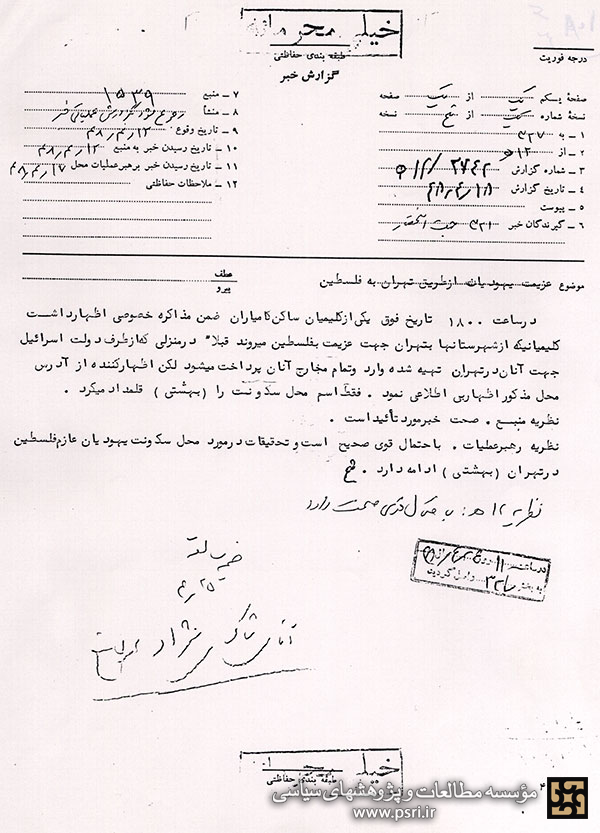 خیلی محرمانه
طبقه بندی حفاظتی
گزارش خبر
درجه فوریت
صفحه یکم یک از یک صفحه
نسخه شماره یک از نسخه
۱ – به ۳۲۷
۲ – از ۱۲ ه
۳ – شماره گزارش ۲۷۴۲/ه ۱۲
۴ – تاریخ گزارش ۴۸/۴/۱۸
۵ – پیوست
۶ – گیرندگان خبر ۳۲۱ جهت استحضار
۷ – منبع ۱۵۳۹
۸ – منشأ
۹ – تاریخ وقوع ۴۸/۴/۱۲
۱۰ – تاریخ رسیدن خبر به منبع ۴۸/۴/۱۲
۱۱ – تاریخ رسیدن خبر برهبر عملیات محل ۴۸/۴/۱۷
۱۲ – ملاحظات حفاظتی
موضوع عزیمت یهودیان ازطریق تهران به فلسطین
عطف
پیرو
درساعت ۱۸۰۰ تاریخ فوق یکی ازکلیمیان ساکن کامیاران ضمن مذاکره خصوصی اظهارداشت
کلیمیانیکه ازشهرستانها بتهران جهت عزیمت بفلسطین میروند قبلا" درمنزلی که ازطرف دولت اسرائیل
جهت آنان درتهران تهیه شده وارد وتمام مخارج آنان پرداخت میشود لکن اظهارکننده از آدرس
محل مذکور اظهاربی اطلاعی نمود . فقط اسم محل سکونت را (بهشتی) قلمداد میکرد .
نظریه منبع . صحت خبرمورد تأئید است .
نظریه رهبرعملیات . باحتمال قوی صحیح است و تحقیقات درمورد محل سکونت یهودیان عازم فلسطین
درتهران (بهشتی) ادامه دارد .
نظریه ۱۲ ه : باحتمال قوی صحت دارد
درساعت ۱۱ روز
به بخش ۳۲۱ واصل گردید
۲۵/۴
آقای نژاد
خیلی
طبقه بندی حفاظتی
مؤسسه مطالعات و پژوهشهای سیاسی
www.psri.ir